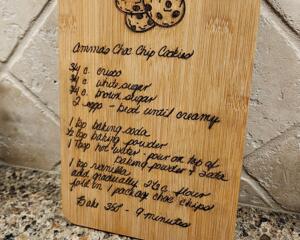 Ammas Choc Chip Cookies
3/4 c. crisco
3/4 c. white sugar
3/4 c. brown sugar
2 eggs - beat until creamy
1 tsp baking soda
1/2 tsp baking powder
1 Tbsp hot water pour on top of
baking powder & soda
1 tsp vanilla
add gradually 2 1/2 c flour
fold in 1 package choc chips
Bake 350° - 9 minutes